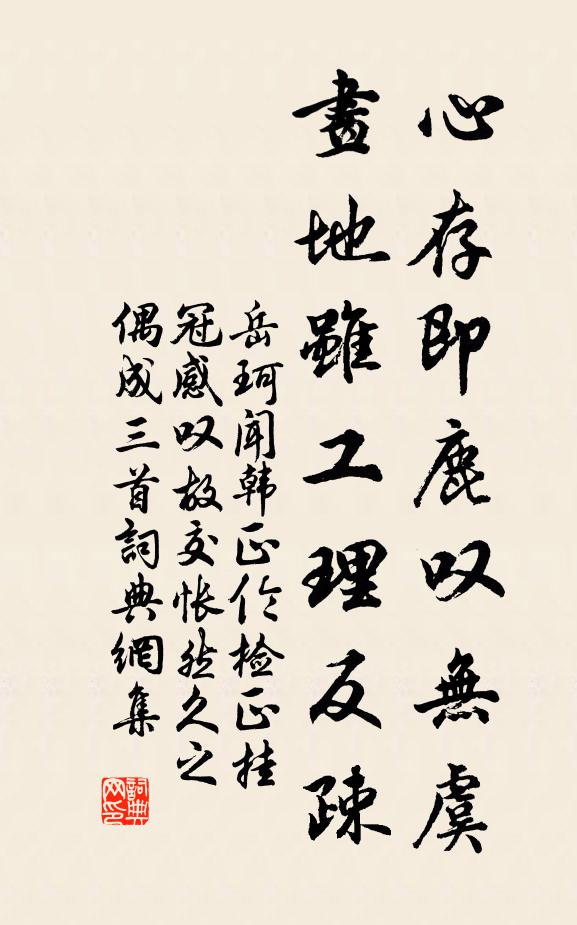 心存即鹿叹無虞
畫地雖工理反疎
岳珂闻韩正伦检正挂
冠感叹故交怅然久之
偶成三首詞典網集
詞典网印